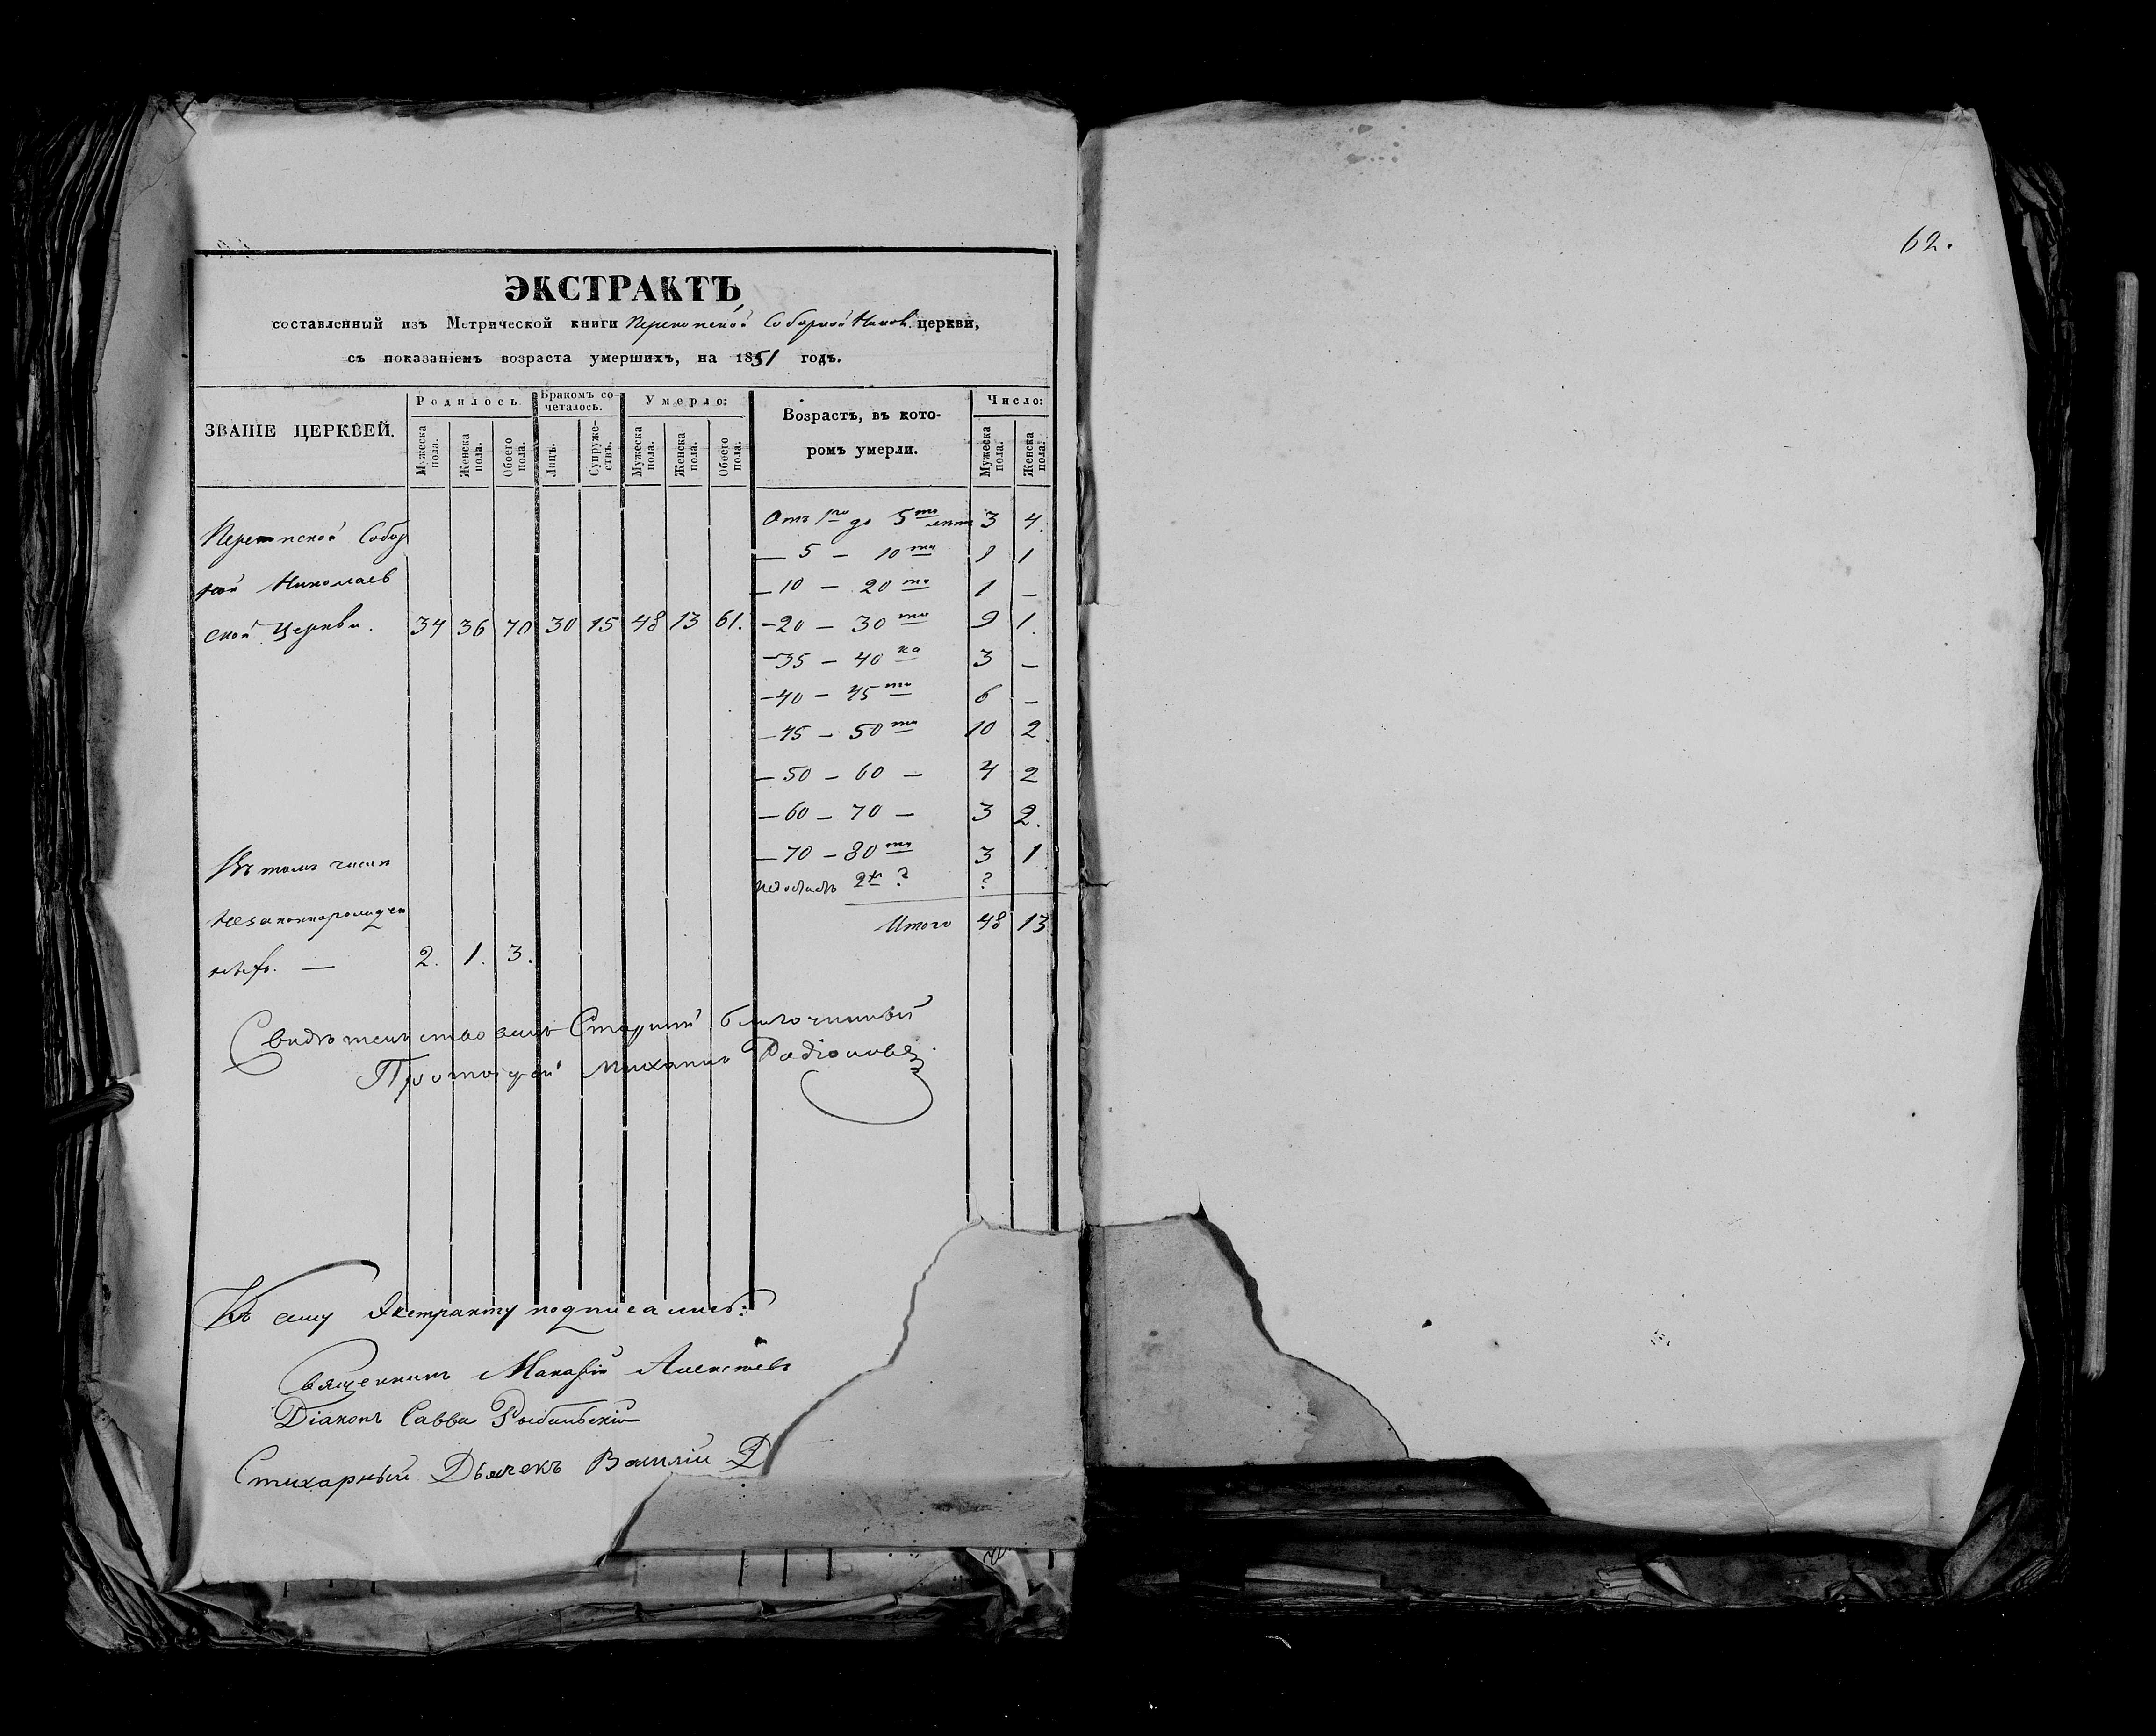 62.
ЭКСТРАКТЪ,
составленный изъ Метрической книги Перекопской Соборной Никол. церкви,
съ показаніемъ возраста умершихъ, на 1851 годъ.
ЗВАНІЕ ЦЕРКВЕЙ.
Родилось.
Бракомъ сочеталось.
Умерло:
Возрастъ, въ которомъ умерли.
Число:
Мужеска пола. Женска пола. Обоего пола. Лицъ. Супружествъ. Мужеска пола. Женска пола. Обоего пола. Мужеска пола. Женска пола.
Перекопской Собор
ной Николаев
ской Церкви. 34 36 70 30 15 48 13 61.
Отъ 1го до 5ти лѣтъ 3 4.
— 5 — 10ти 1
— 10 — 20ти 1 —
— 20 — 30ти 9 1.
— 35 — 40ка 3 —
— 40 — 45ти 6 —
— 45 — 50ти 10 2
— 50 — 60 — 4 2
— 60 — 70 — 3 2.
— 70 — 80ти 3 1
? ?
Итого 48 13
Въ томъ числѣ
незаконнорожден
ныхъ. — 2. 1. 3.
Свидѣтельствовалъ Старшій благочинный
Протоіерей Михаилъ Родіоновъ
Къ сему Экстракту подписались:
Священникъ Макарій Алексѣевъ
Діаконъ Савва Рыбальскій
Стихарный Дьячекъ Василій Д